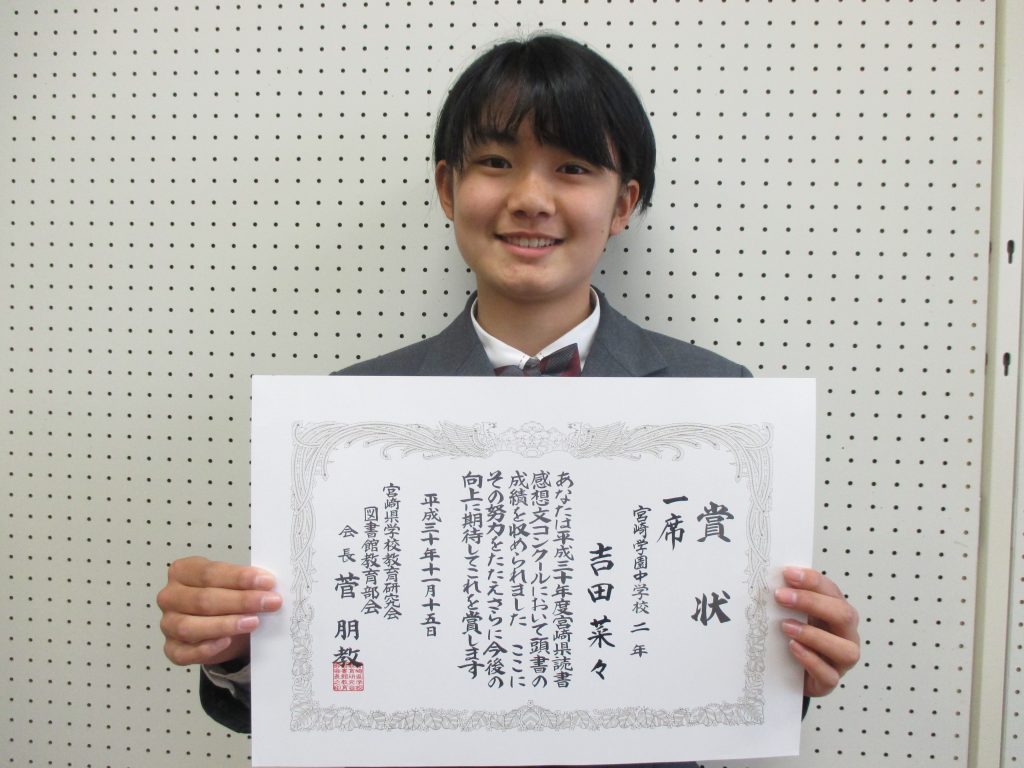 賞状
一席
宮崎学園中学校 二年
吉田菜々
あなたは平成三十年度宮崎県読書
感想文コンクールにおいて頭書の
成績を収められました ここに
その努力をたたえさらに今後の
向上に期待してこれを賞します
平成三十年十一月十五日
宮崎県学校教育研究会
図書館教育部会
会長 菅 朋教